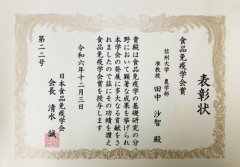 表彰状
食品免疫学会賞
信州大学 農学部
准教授 田中 沙智 殿
貴殿は食品免疫学の基礎研究の分
野において顕著な成果を挙げられ
本学会の発展に多大なる貢献を
されましたので茲にその功績を讃え
食品免疫学会賞を授与します
令和六年十二月三日
日本食品免疫学会
会長 清水 誠
第二一号